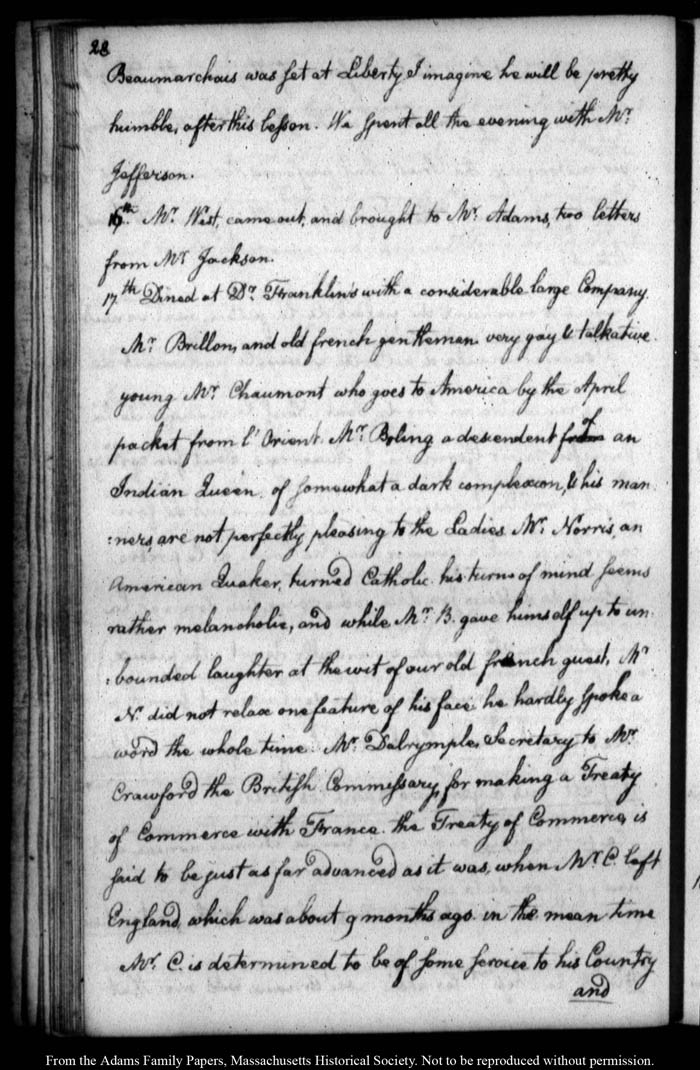 28
Beaumarchais was set at Liberty I imagine he will be pretty
humble, after this lesson. We spent all the evening with Mr.
Jefferson.
16th. Mr. West, came out, and brought to Mr. Adams, two letters
from Mr. Jackson.
17th Dined at Dr. Franklin's with a considerable large Company.
Mr. Brillon, and old french gentleman very gay & talkative.
young Mr. Chaumont who goes to America by the April
packet from l'Orient. Mr. Boling a descendent of an
Indian Queen. of somewhat a dark complexion, & his man
:ners, are not perfectly pleasing to the Ladies. Mr. Norris, an
American Quaker, turned Catholic. his turn of mind seems
rather melancholic, and while Mr. B. gave himself up to un
:bounded laughter at the wit of our old french guest, Mr
N. did not relax one feature of his face. he hardly spoke a
word the whole time. Mr. Dalrymple, Secretary to Mr.
Crawford the British Commissary, for making a Treaty
of Commerce with France. the Treaty of Commerce, is
said to be just as far advanced as it was, when Mr. C. left
England, which was about 9 months ago. in the mean time
Mr. C. is determined to be of some service to his Country
and
From the Adams Family Papers, Massachusetts Historical Society. Not to be reproduced without permission.